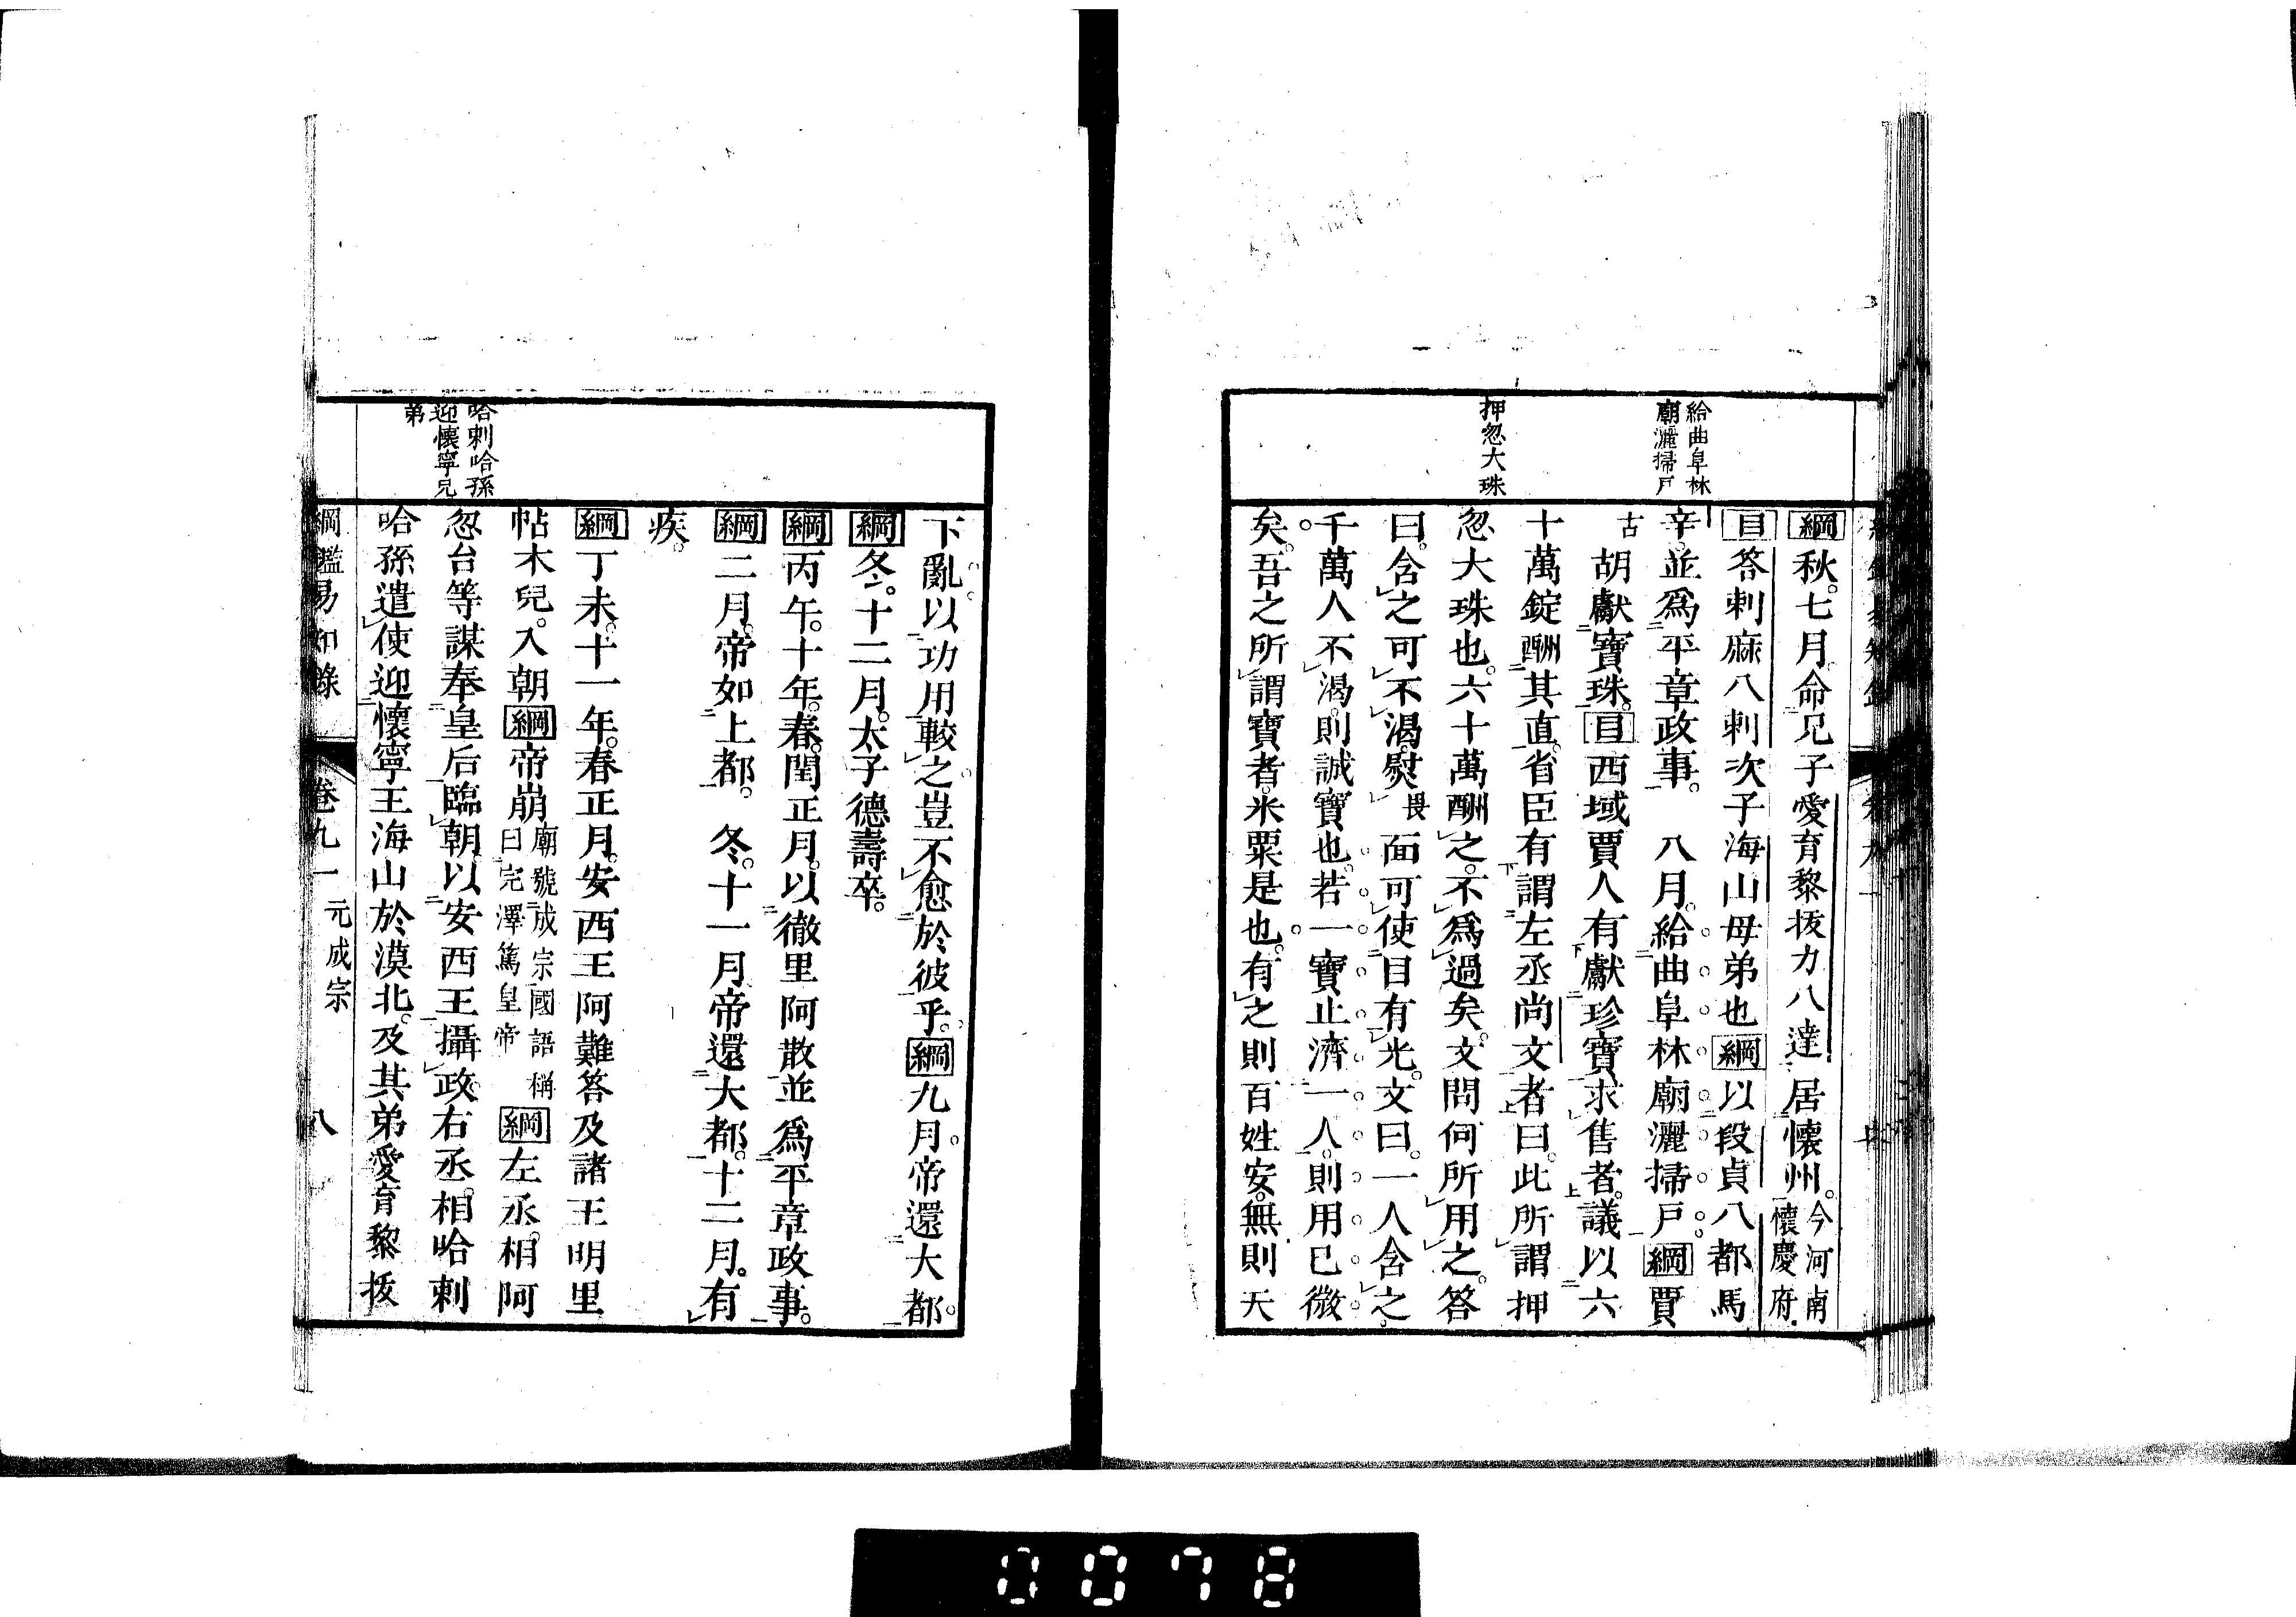 給曲阜林
廟灑掃戶
押忽大珠
綱秋。七月。命兄子愛育黎拔力八達居懷州。今河南
懷慶府.
目答剌麻八剌次子海山母弟也綱以段貞八都馬
辛。並爲平章政事。 八月。給曲阜林廟灑掃戶。綱賈
古胡獻寶珠。目西域賈人有獻珍寶求售者。議以六
十萬錠酬其直。省臣有謂左丞尚文者曰。此所謂押
忽大珠也。六十萬酬之。不爲過矣。文問何所用之。答
曰。含之可不渴。熨畏面可使目有光。文曰。一人含之。
千萬人不渴。則誠寶也。若一寶止濟一人。則用已微
矣。吾之所謂寶者。米粟是也。有之則百姓安。無則天
哈剌哈孫
迎懷寧兄
弟
下亂。以功用較之豈不愈於彼乎。綱九月。帝還大都。
綱冬。十二月。太子德壽卒。
綱丙午。十年。春。閏正月。以徹里阿散並爲平章政事。
綱二月。帝如上都。 冬。十一月帝還大都。十二月。有
疾。
綱丁未。十一年。春正月。安西王阿難答及諸王明里
帖木兒。入朝綱帝崩廟號成宗國語稱
曰完澤篤皇帝綱左丞相阿
忽台等謀奉皇后臨朝。以安西王攝政。右丞相哈剌
哈孫遣使迎懷寧王海山於漠北。及其弟愛育黎拔
綱鑑易知錄 卷九一 元成宗 八